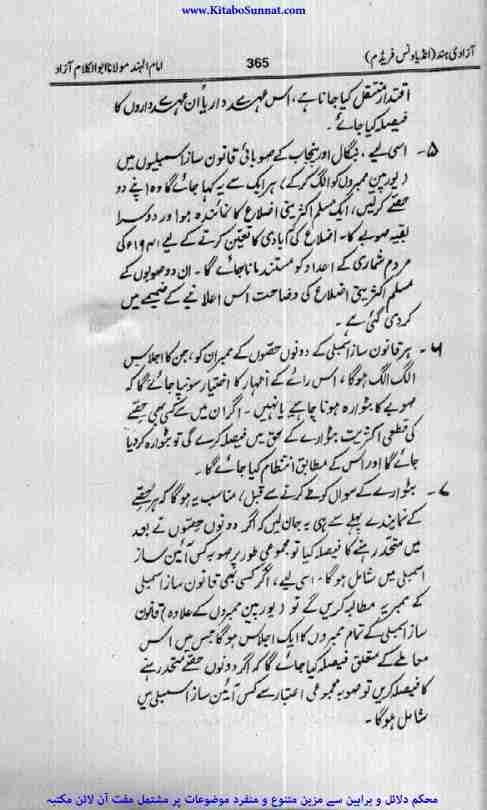 www.KitaboSunnat.com
آزادی ہند (انڈیا ونس فریڈم) 365 امام الہند مولانا ابوالکلام آزاد
اقتدار منتقل کیا جانا ہے، اس عہدے دار یا ان عہدے داروں کا
فیصلہ کیا جائے۔
۵- اسی لیے، بنگال اور پنجاب کے صوبائی قانون ساز اسمبلیوں میں
(یورپین ممبروں کو الگ کرکے) ہر ایک سے یہ کہا جائے گا وہ اپنے دو
حصے کرلیں، ایک مسلم اکثریتی اضلاع کا نمائندہ ہو اور دوسرا
بقیہ صوبے کا۔ اضلاع کی آبادی کا تعین کرنے کے لیے ۱۹۴۱ء کی
مردم شماری کے اعداد کو مستند مانا جائے گا۔ ان دو صوبوں کے
مسلم اکثریتی اضلاع کی وضاحت اس اعلانیے کے ضمیمے میں
کردی گئی ہے۔
۶- ہر قانون ساز اسمبلی کے دونوں حصوں کے ممبران کو، جن کا اجلاس
الگ الگ ہوگا، اس رائے کے اظہار کا اختیار سونپا جائے گا کہ
صوبے کا بٹوارہ ہونا چاہیے یا نہیں۔ اگر ان میں سے کسی بھی حصے
کی قطعی اکثریت بٹوارے کے حق میں فیصلہ کرے گی تو بٹوارہ کردیا
جائے گا اور اس کے مطابق انتظام کیا جائے گا۔
۷- بٹوارے کے سوال کو طے کرنے سے قبل، مناسب یہ ہوگا کہ ہر حصے
کے نمایندے پہلے سے ہی یہ جان لیں کہ اگر دونوں حصوں نے بعد
میں متحد رہنے کا فیصلہ کیا تو مجموعی طور پر صوبہ کس آئین ساز
اسمبلی میں شامل ہوگا۔ اسی لیے، اگر کسی بھی قانون ساز اسمبلی
کے ممبر یہ مطالبہ کریں گے تو (یورپین ممبروں کے علاوہ) قانون
ساز اسمبلی کے تمام ممبروں کا ایک اجلاس ہوگا جس میں اس
معاملے کے متعلق فیصلہ کیا جائے گا کہ اگر دونوں حصے متحد رہنے
کا فیصلہ کریں تو صوبہ مجموعی اعتبار سے کس آئین ساز اسمبلی میں
شامل ہوگا۔
محکم دلائل و براہین سے مزین متنوع و منفرد موضوعات پر مشتمل مفت آن لائن مکتبہ